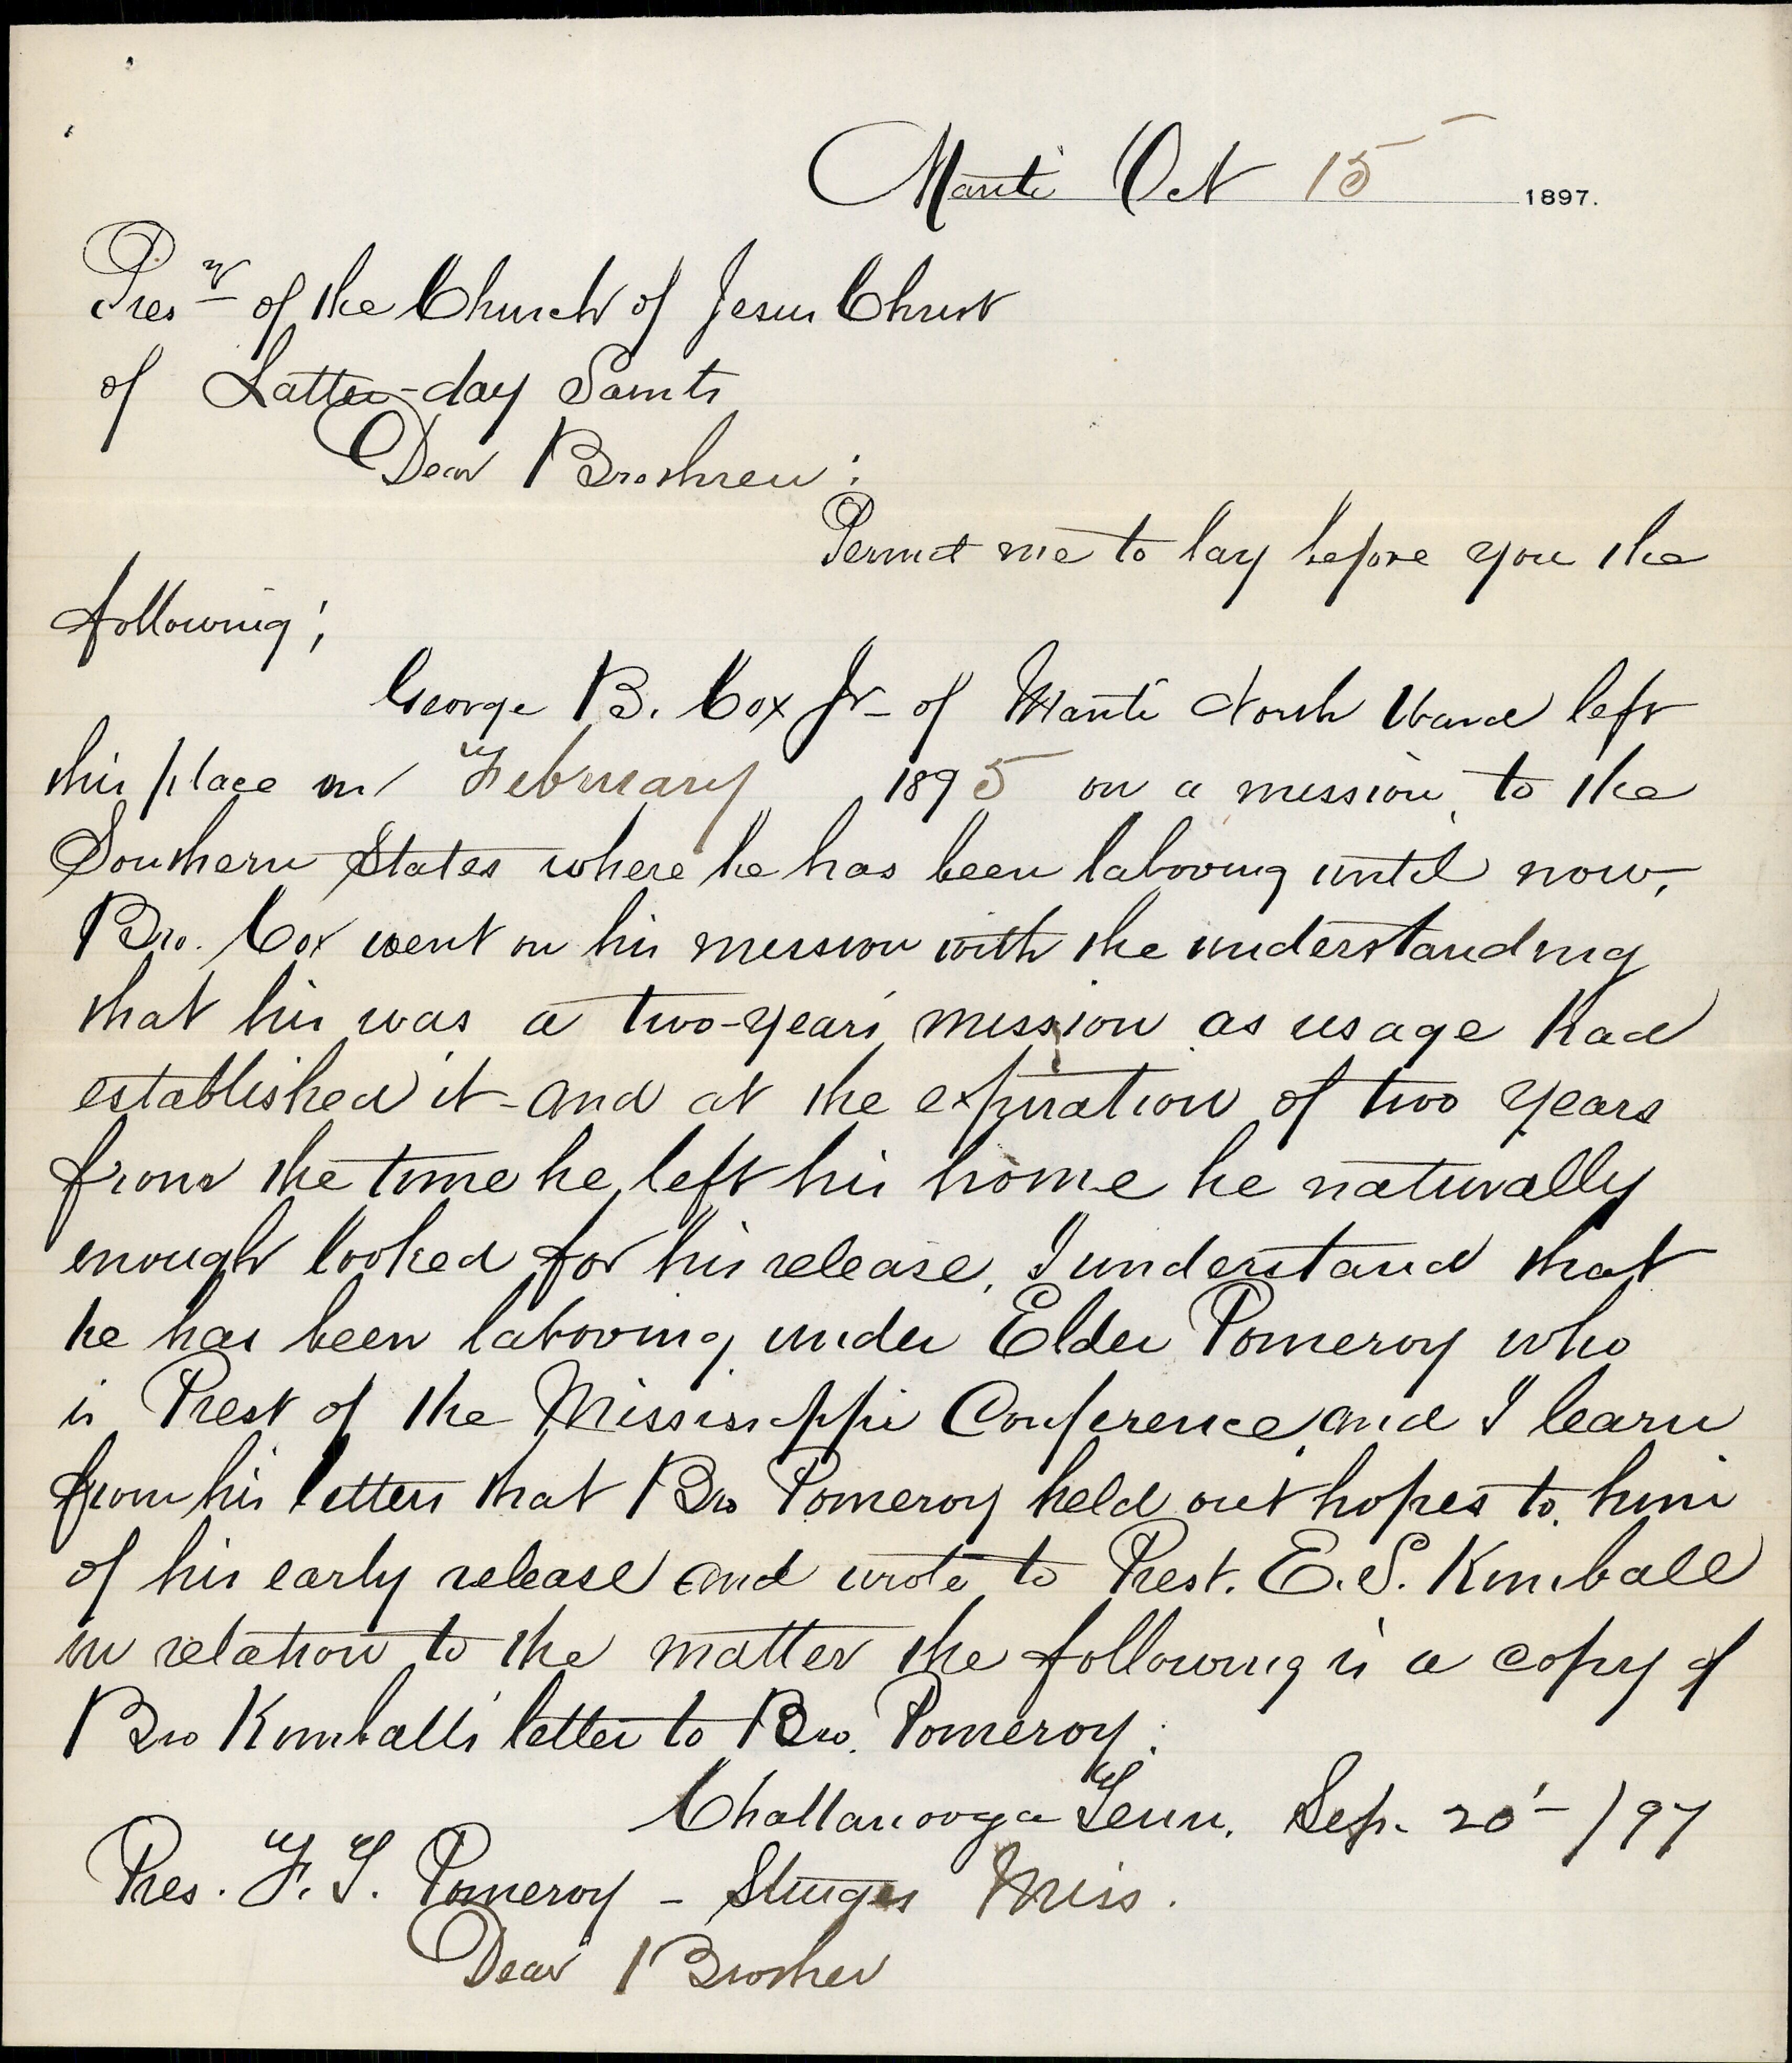 Manti Oct 15 1897.
Presy of the Church of Jesus Christ
of Latter-day Saints
Dear Brethren:
Permit me to lay before you the
following;
George B. Cox Jr- of Manti North Ward left
this place on February 1895 on a mission to the
Southern States where he has been laboring until now,
Bro. Cox went on his mission with the understanding
that his was a two-years mission as usage had
established it - and at the expiration of two years
from the time he left his home he naturally
enough looked for his release. I understand that
he has been laboring under Elder Pomeroy who
is Prest of the Mississippi Conference and I learn
from his letters that Bro Pomeroy held out hopes to him
of his early release and wrote to Prest. E. S. Kimball
in relation to the matter the following is a copy of
Bro Kimball's letter to Bro. Pomeroy:
Chattanooga Tenn. Sep. 20- /97
Pres. F. T. Pomeroy - Sturges Miss.
Dear Brother